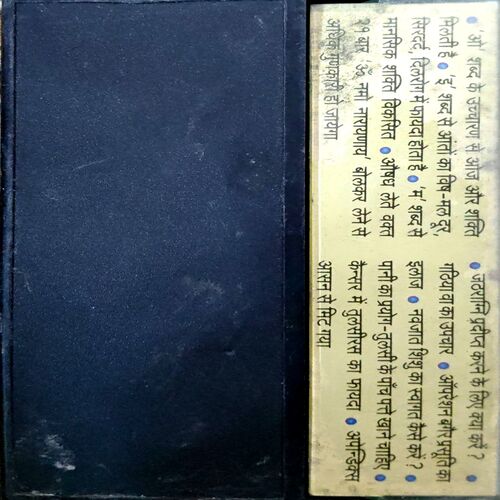 • 'ओ' शब्द के उच्चारण से ओज और शक्ति
मिलती है • 'ह' शब्द से आंतों का विष-मल दूर,
सिरदर्द, दिलरोग में फायदा होता है • 'म' शब्द से
मानसिक शक्ति विकसित • औषध लेते वक्त
२१ बार 'ॐ नमो नारायणाय' बोलकर लेने से
अधिक गुणकारी हो जायेगा.
• जठराग्नि प्रदीप्त करने के लिए क्या करें ?
गठिया वा का उपचार • ऑपरेशन और प्रसूति का
इलाज • नवजात शिशु का स्वागत कैसे करें ? •
पानी का प्रयोग-तुलसी के पाँच पत्ते खाने चाहिए •
कैन्सर में तुलसीरस का फायदा • अपेन्डिक्स
आसन से मिट गया